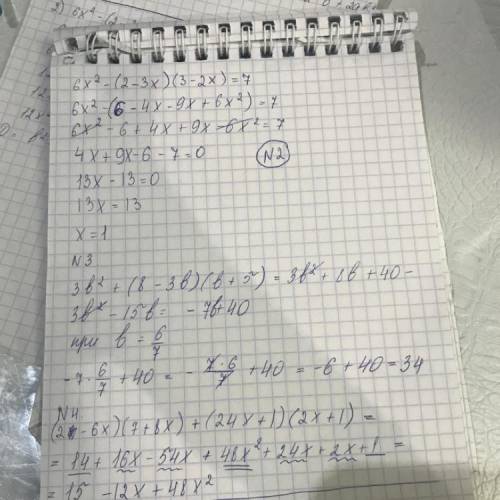 6x² - (2 - 3x)(3 - 2x) = 7
6x² - (6 - 4x - 9x + 6x²) = 7
6x² - 6 + 4x + 9x - 6x² = 7
4x + 9x - 6 - 7 = 0 N2
13x - 13 = 0
13x = 13
x = 1
N3
3b² + (8 - 3b)(b + 5) = 3b² + 8b + 40 -
3b² - 15b = - 7b + 40
при b = 6/7
-7 · 6/7 + 40 = - 7·6/7 + 40 = -6 + 40 = 34
N4.
(2 - 6x)(7 + 8x) + (24x + 1)(2x + 1) =
= 14 + 16x - 54x + 48x² + 24x + 2x + 1 =
= 15 - 12x + 48x²